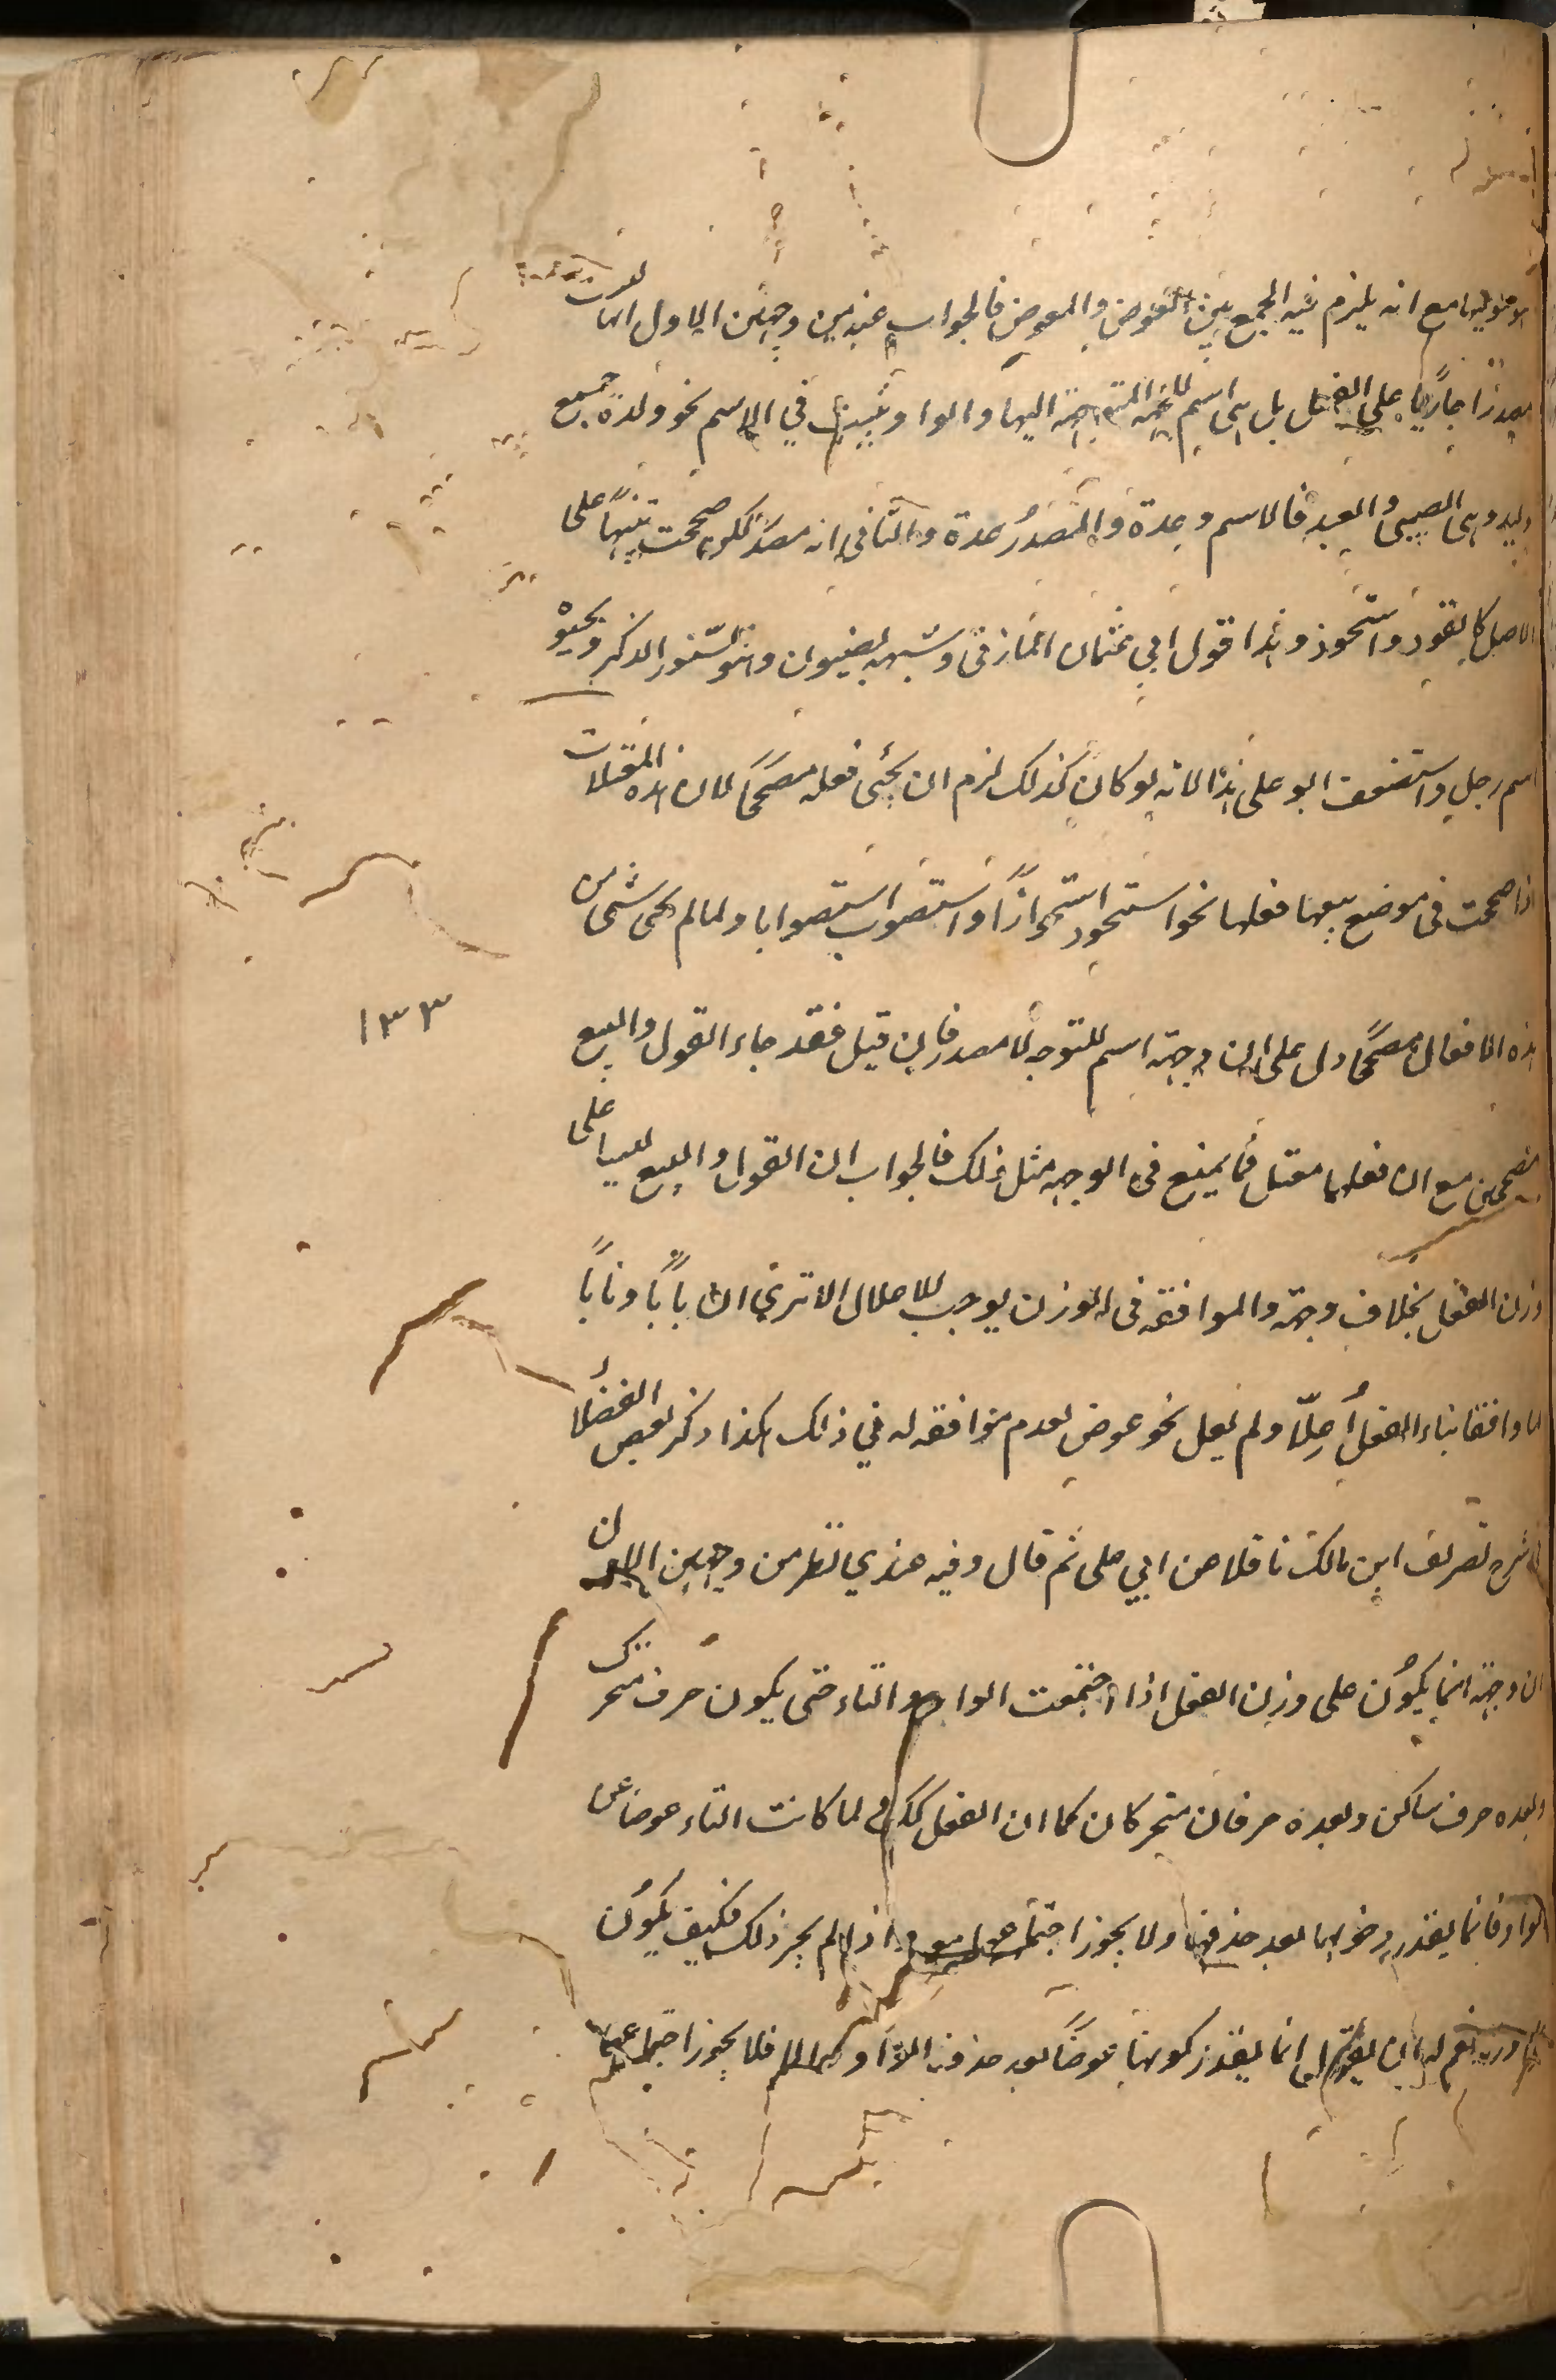 مع انه يلزم فيه الجمع بين العوض والمعوض فالجواب عنه من وجهين الاول انها ليست
مصدرًا جاريًا على الفعل بل هى اسم للجهة المتوجهة اليها والواو تثبت في الاسم نحو ولدة جمع
وليد وهى الصبى والعبد فالاسم وعدة والمصدرُ عدة والثانى انه مصدر لكن صححت تنبيهًا على
الاصل كالقود واستحوذ وهذا قول ابي عثمان المازنى وشبهه بضيون وهو السّنور الذكر وحيوْة
اسم رجل واستضعف ابو على هذا لانه لو كان كذلك لزم ان يجئ فعله مصححًا لان هذه المعتلات
اذا صححت فى موضع يتبعها فعلها نحو استحوذ استحواذًا واستصوب استصوابا ولما لم يجى شئ من
هذه الافعال مصححًا دل على ان وجهة اسم للتوجه لا مصدر فان قيل فقد جاء القول والبيع
مصححين مع ان فعلهما معتل فما يمنع فى الوجهة مثل ذلك فالجواب ان القول والبيع ليسا على
وزن الفعل بخلاف وجهة والموافقة فى الوزن يوجب للاعلال الا ترى ان بابًا ونابًا
لما وافقا بناء الفعل أُعِلّا ولم يعل نحو عوض لعدم موافقه له في ذلك هكذا ذكر بعض الفضلأ
فى شرح تصريف ابن مالك ناقلا عن ابي على ثم قال وفيه عندي نظر من وجهين الاول
ان وجهة انما يكوُن على وزن الفعل اذا اجتمعت الواو والتاء حتى يكون حرف متحرك
وبعده حرف ساكن وبعده حرفان متحركان كما ان الفعل كذلك لما كانت التاء عوضا عن
الواو فانما يقدر دخولها بعد حذفها ولا يجوز اجتماعهما واذا لم يجز ذلك فكيف يكوُن
له ان يقول انما يقدر كونها عوضًا بعد حذف الواو فلا يجوز اجتماعهما
١٣٣